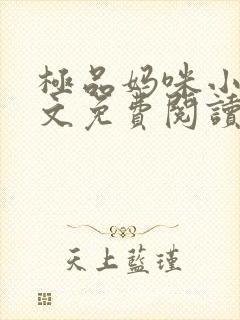 極品妈咪小
文免費閱讀
天上藍瑾